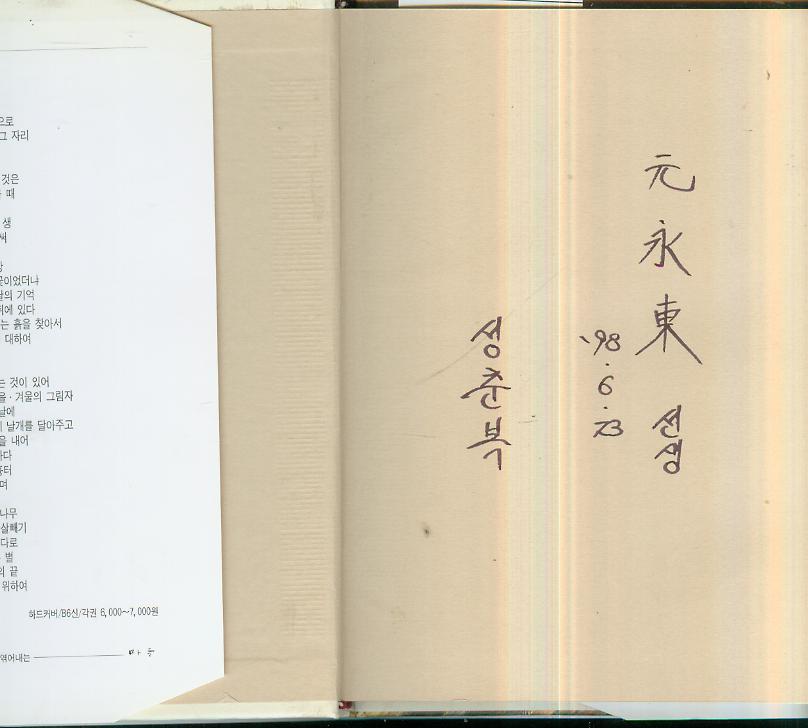 으로
그 자리
것은
때
생
써
꽃이었더냐
의 기억
뒤에 있다
는 흙을 찾아서
대하여
는 것이 있어
울·거울의 그림자
날에
날개를 달아주고
을 내어
하다
며
나무
살빼기
다로
별
의 끝
위하여
하드커버/B6신/각권 6,000~7,000원
엮어내는 마을
元永東 선생
'98.6.23
성춘복